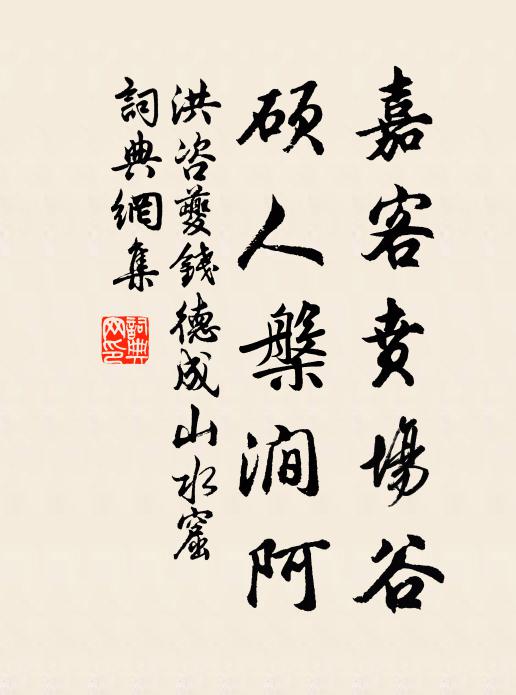 嘉客賁場谷
碩人槃澗阿
洪咨夔錢德成山水窟
詞典網集
詞典網印